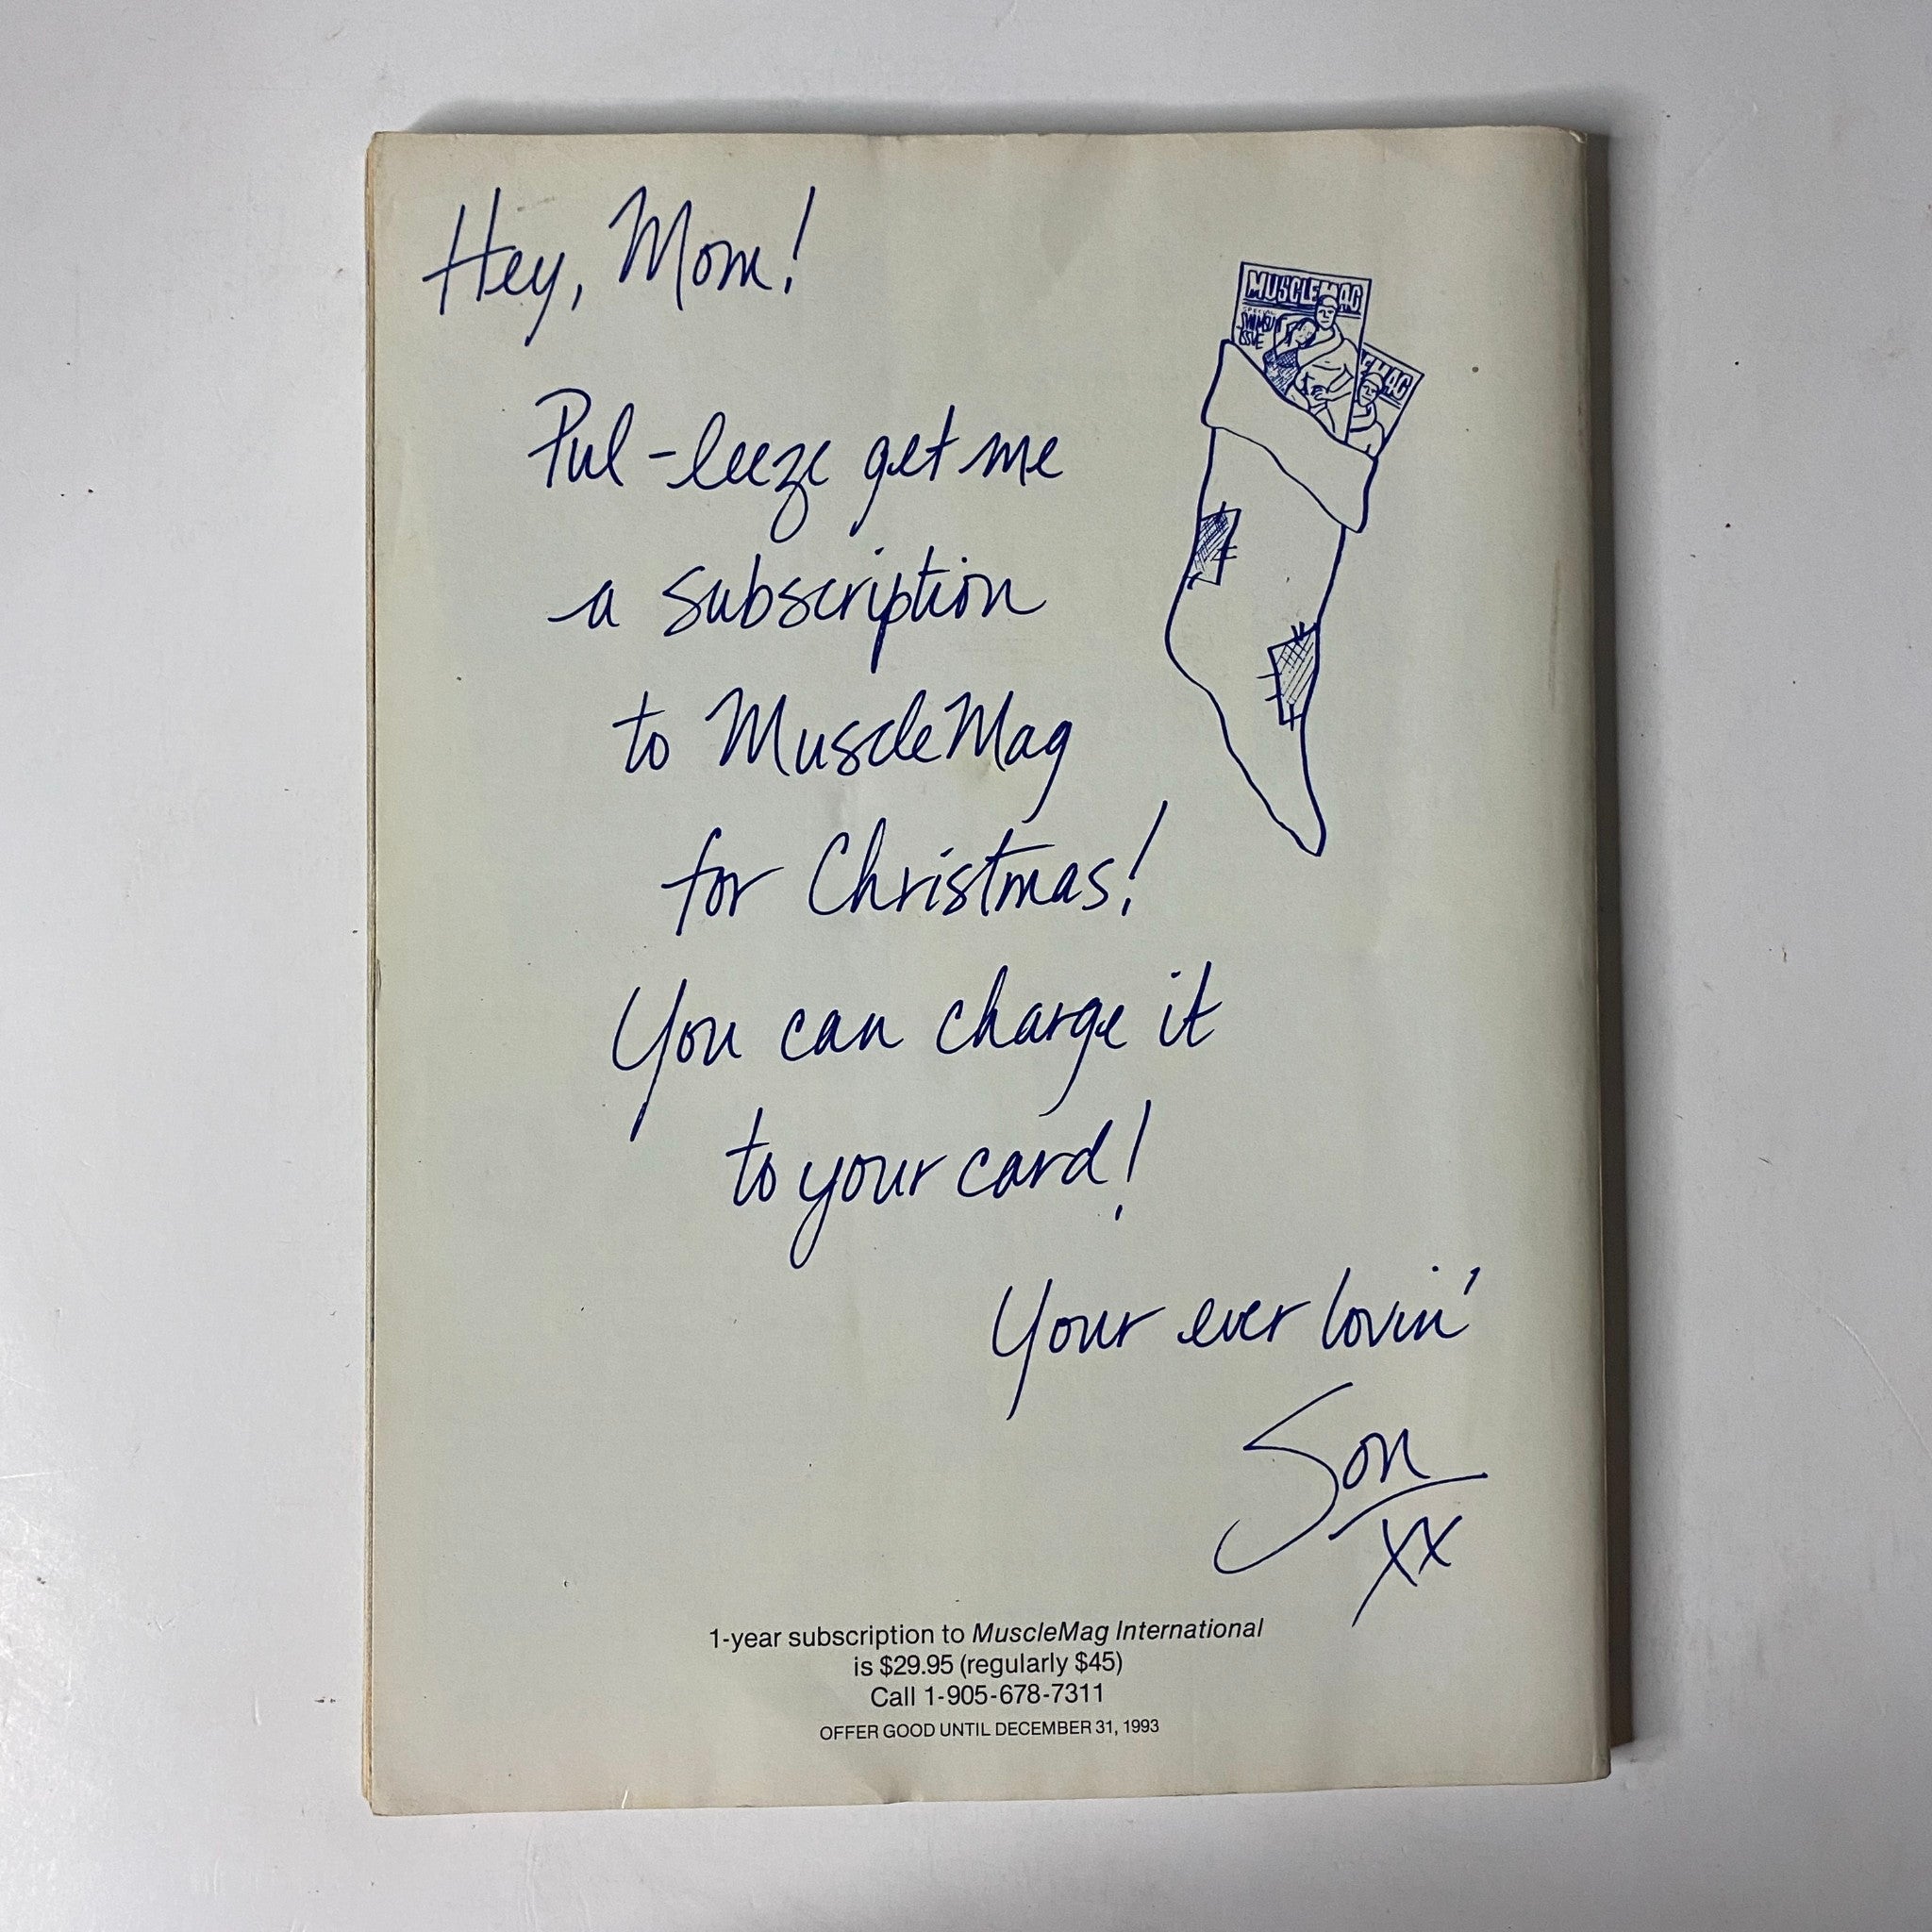 Hey, Mom!
MUSCLEMAG
SPECIAL
SWIMSUIT
ISSUE
EMAG
Pul-leeze get me
a subscription
to MuscleMag
for Christmas!
You can charge it
to your card!
Your ever lovin'
Son
xx
1-year subscription to MuscleMag International
is $29.95 (regularly $45)
Call 1-905-678-7311
OFFER GOOD UNTIL DECEMBER 31, 1993